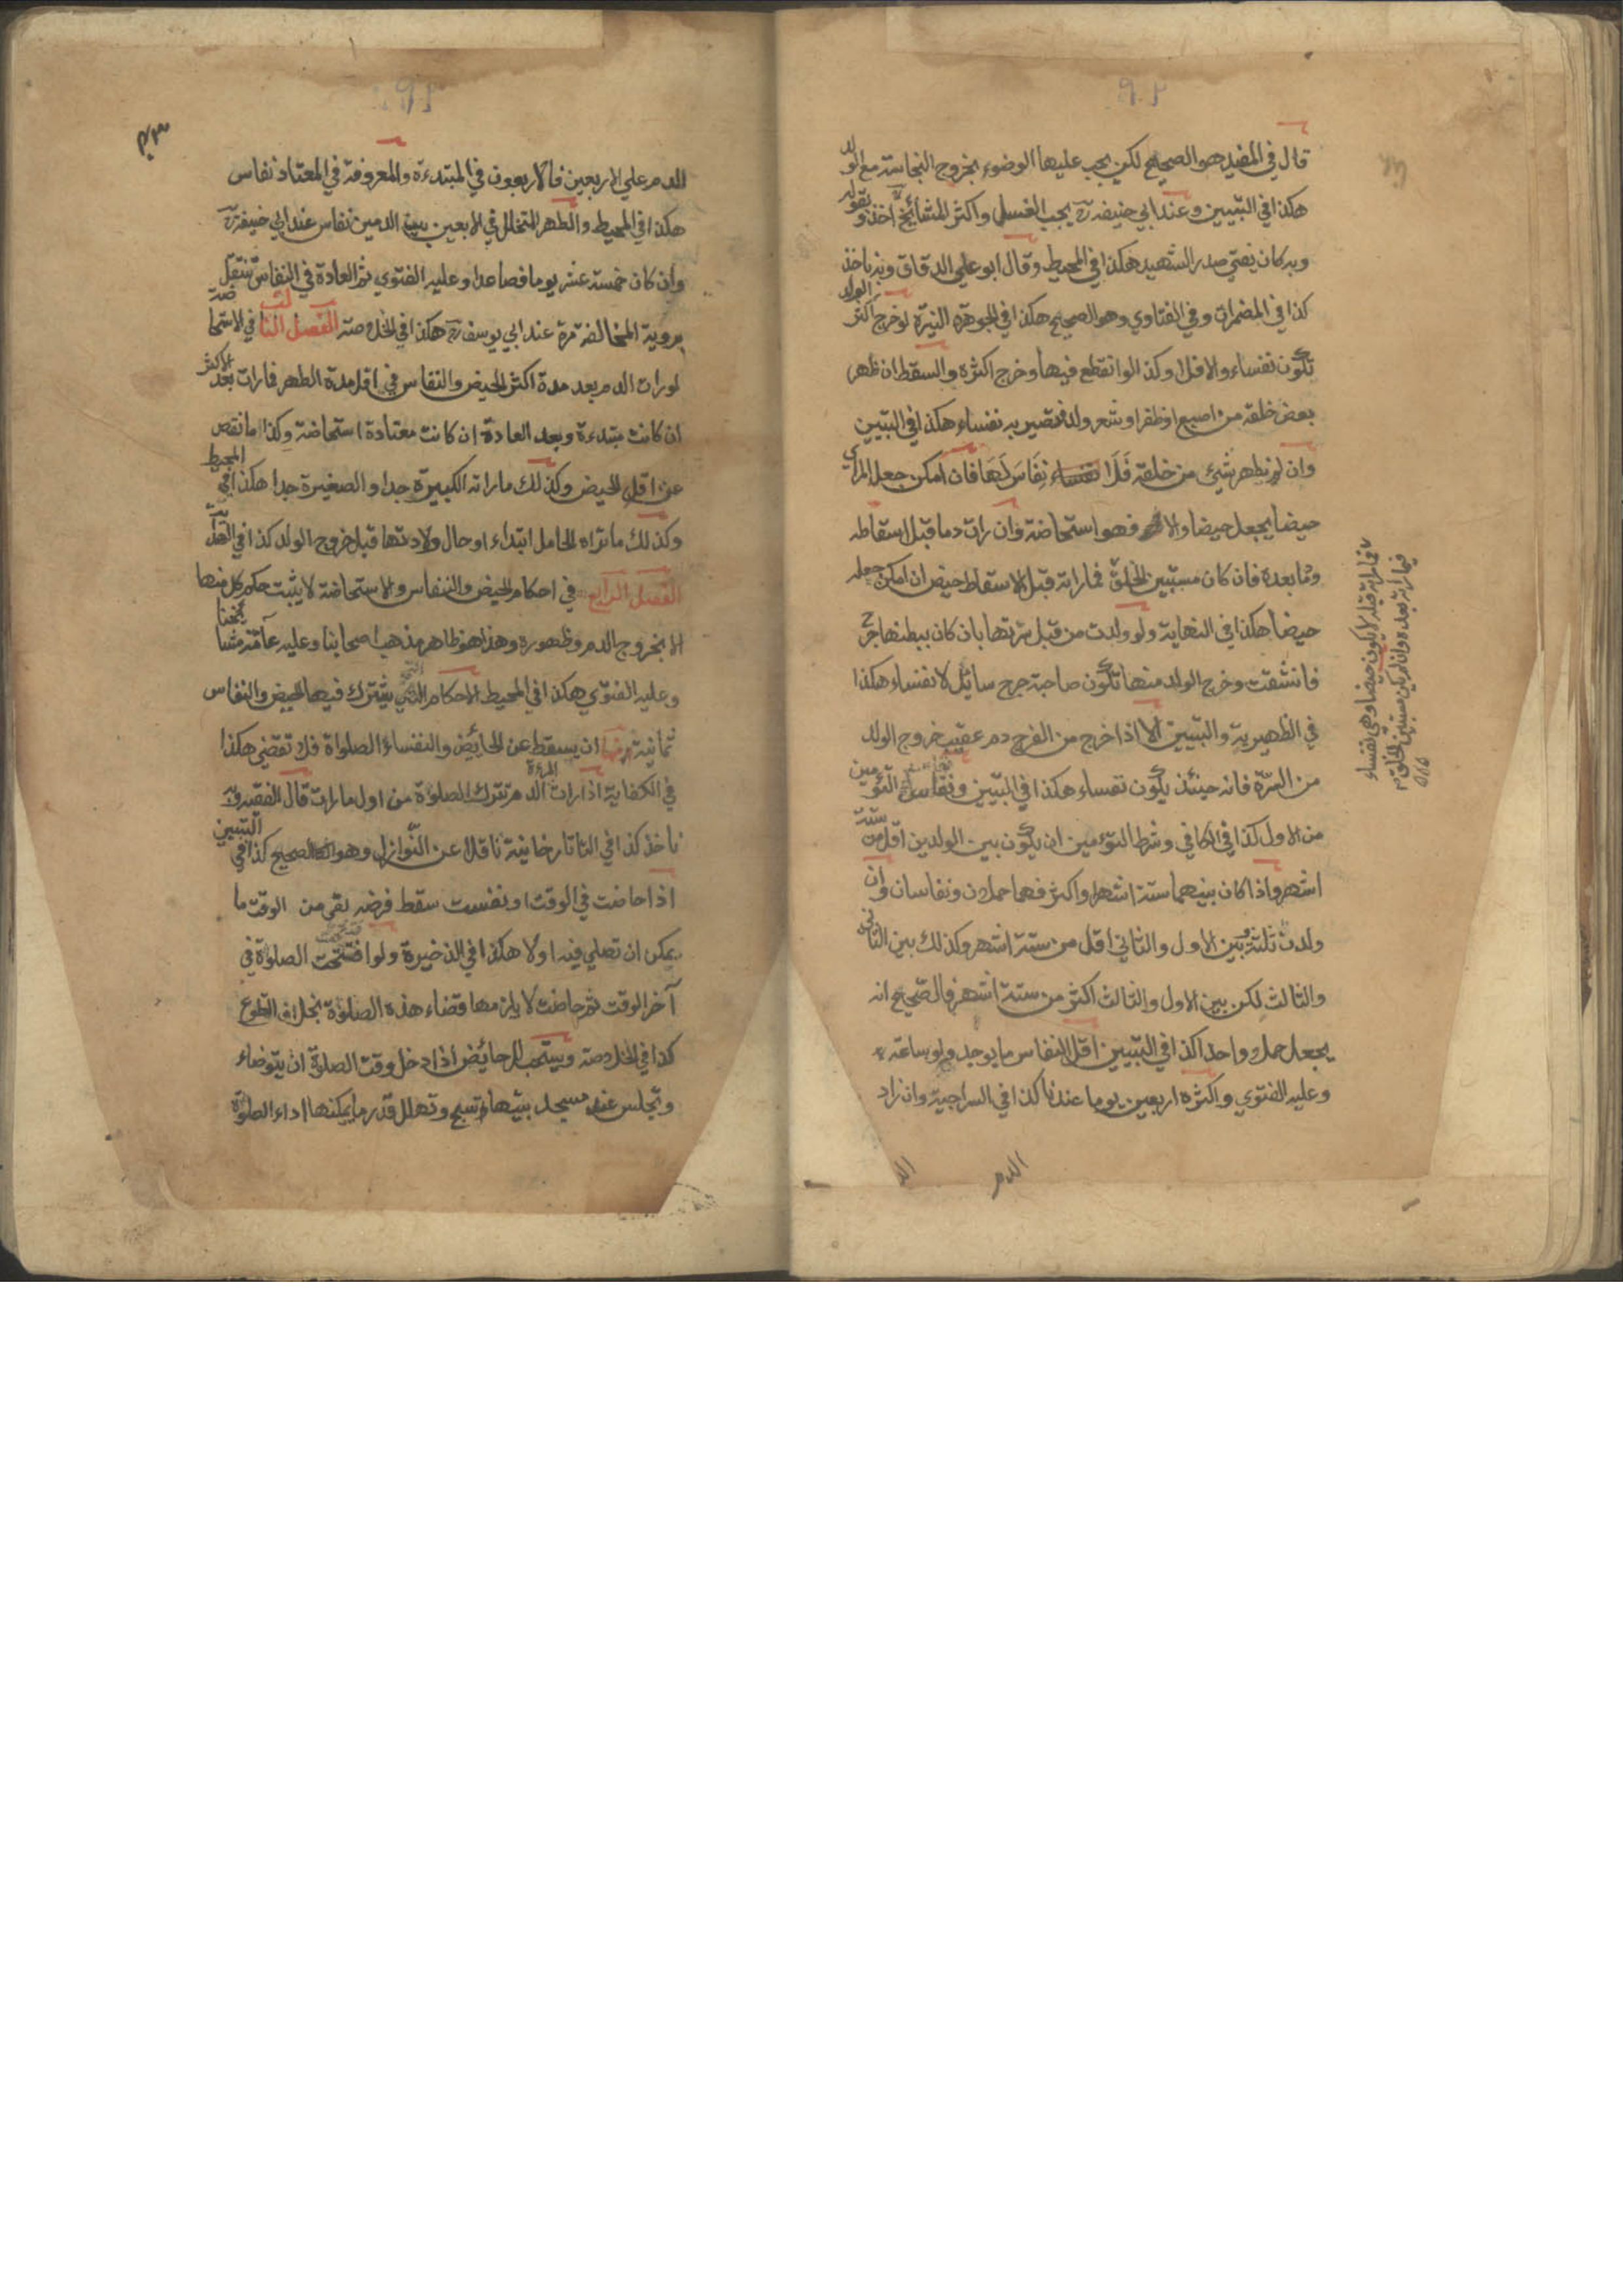 قال في المفيد هو الصحيح لكن يجب عليها الوضوء بخروج النجاسة مع الولد
هكذا في التبيين وعند ابي حنيفة رح يجب الغسل واكثر المشائخ اخذوا بقوله
وبه كان يفتي صدر الشهيد هكذا في المحيط وقال ابو علي الدقاق وبه ناخذ
كذا في المضمرات وفي الفتاوي وهو الصحيح هكذا في الجوهرة النيرة لو خرج اكثر الولد
تكون نفساء والا فلا وكذا لو انقطع فيها وخرج اكثره والسقط ان ظهر
بعض خلقه من اصبع او ظفر او شعر ولد فتصير به نفساء هكذا في التبيين
وان لم يظهر شيئ من خلقه فَلَا نِفَاسَ لَهَا فان امكن جعل المرأي
حيضا يجعل حيضا والا فهو استحاضة وان رات دما قبل اسقاطه
وما بعده فان كان مستبين الخلق فما راته قبل الاسقاط حيض ان امكن جعله
حيضا هكذا في النهاية ولو ولدت من قبل سرتها بان كان ببطنها جرح
فانشقت وخرج الولد منها تكون صاحبة جرح سائل لا نفساء هكذا
في الظهيرية والتبيين الا اذا خرج من الفرج دم عقيب خروج الولد
من السرّة فانه حينئذ يكون نفساء هكذا في التبيين ونفاس التوّمين
من الاول كذا في الكافي وشرط التوءمين ان يكون بين الولدين اقل من ستة
اشهر واذا كان بينهما ستة اشهر واكثر فهما حملان ونفاسان وان
ولدت ثلثة وبين الاول والثاني اقل من ستة اشهر وكذلك بين الثاني
والثالث لكن بين الاول والثالث اكثر من ستة اشهر فالصحيح انه
يجعل حملا واحدا كذا في التبيين اقل النفاس ما يوجد ولو ساعته
وعليه الفتوي واكثره اربعين يوما عندنا كذا في السراجية وان زاد
الدم
فما راته قبله لا يكون حيضا وهي نفساء
فيما راته بعده وان لم يكن مستبين الخلق
الدم علي الاربعين فالاربعون في المبتدءة والمعروفة في المعتاد نفاس
هكذا في المحيط والطهر المتخلل في الاربعين بين الدمين نفاس عند ابي حنيفة رح
وان كان خمسة عشر يوما فصاعدا وعليه الفتوي ثم العادة في النفاس تنتقل
بروية المخالفة مرة عند ابي يوسف رح هكذا في الخلاصة الفصل الثالث في الاستحاضة
لو رات الدم بعد مدة اكثر الحيض والنفاس في اقل مدة الطهر فما رات بعد الاكثر
ان كانت مبتدءة وبعد العادة ان كانت معتادة استحاضة وكذا ما نقص
عن اقل الحيض وكذلك ما راته الكبيرة جدا والصغيرة جدا هكذا في المحيط
وكذلك ما تراه الحامل ابتداء او حال ولادتها قبل خروج الولد كذا في الهداية
الفصل الرابع في احكام الحيض والنفاس والاستحاضة لا يثبت حكم كل منها
الا بخروج الدم وظهوره وهذا هو ظاهر مذهب اصحابنا وعليه عامّة مشايخنا
وعليه الفتوي هكذا في المحيط الاحكام التي يشترك فيها الحيض والنفاس
ثمانية منها ان يسقط عن الحايض والنفساء الصلواة فلا تقضي هكذا
في الكفاية اذا رات المرءة الدم تترك الصلوة من اول ما رات قال الفقيه وبه
ناخذ كذا في التاتارخانية ناقلا عن النّوازل وهو الصحيح كذا في التبيين
اذا حاضت في الوقت او نفست سقط فرضه بقي من الوقت ما
يمكن ان تصلي فيه او لا هكذا في الذخيرة ولو افتتحت الصلوة في
آخر الوقت ثم حاضت لا يلزمها قضاء هذه الصلوة بخلاف التطوع
كذا في الخلاصة ويستحب للحائض اذا دخل وقت الصلوة ان يتوضاء
وتجلس عند مسجد بيتها وتسبح وتهلل قدر ما يمكنها اداء الصلوة